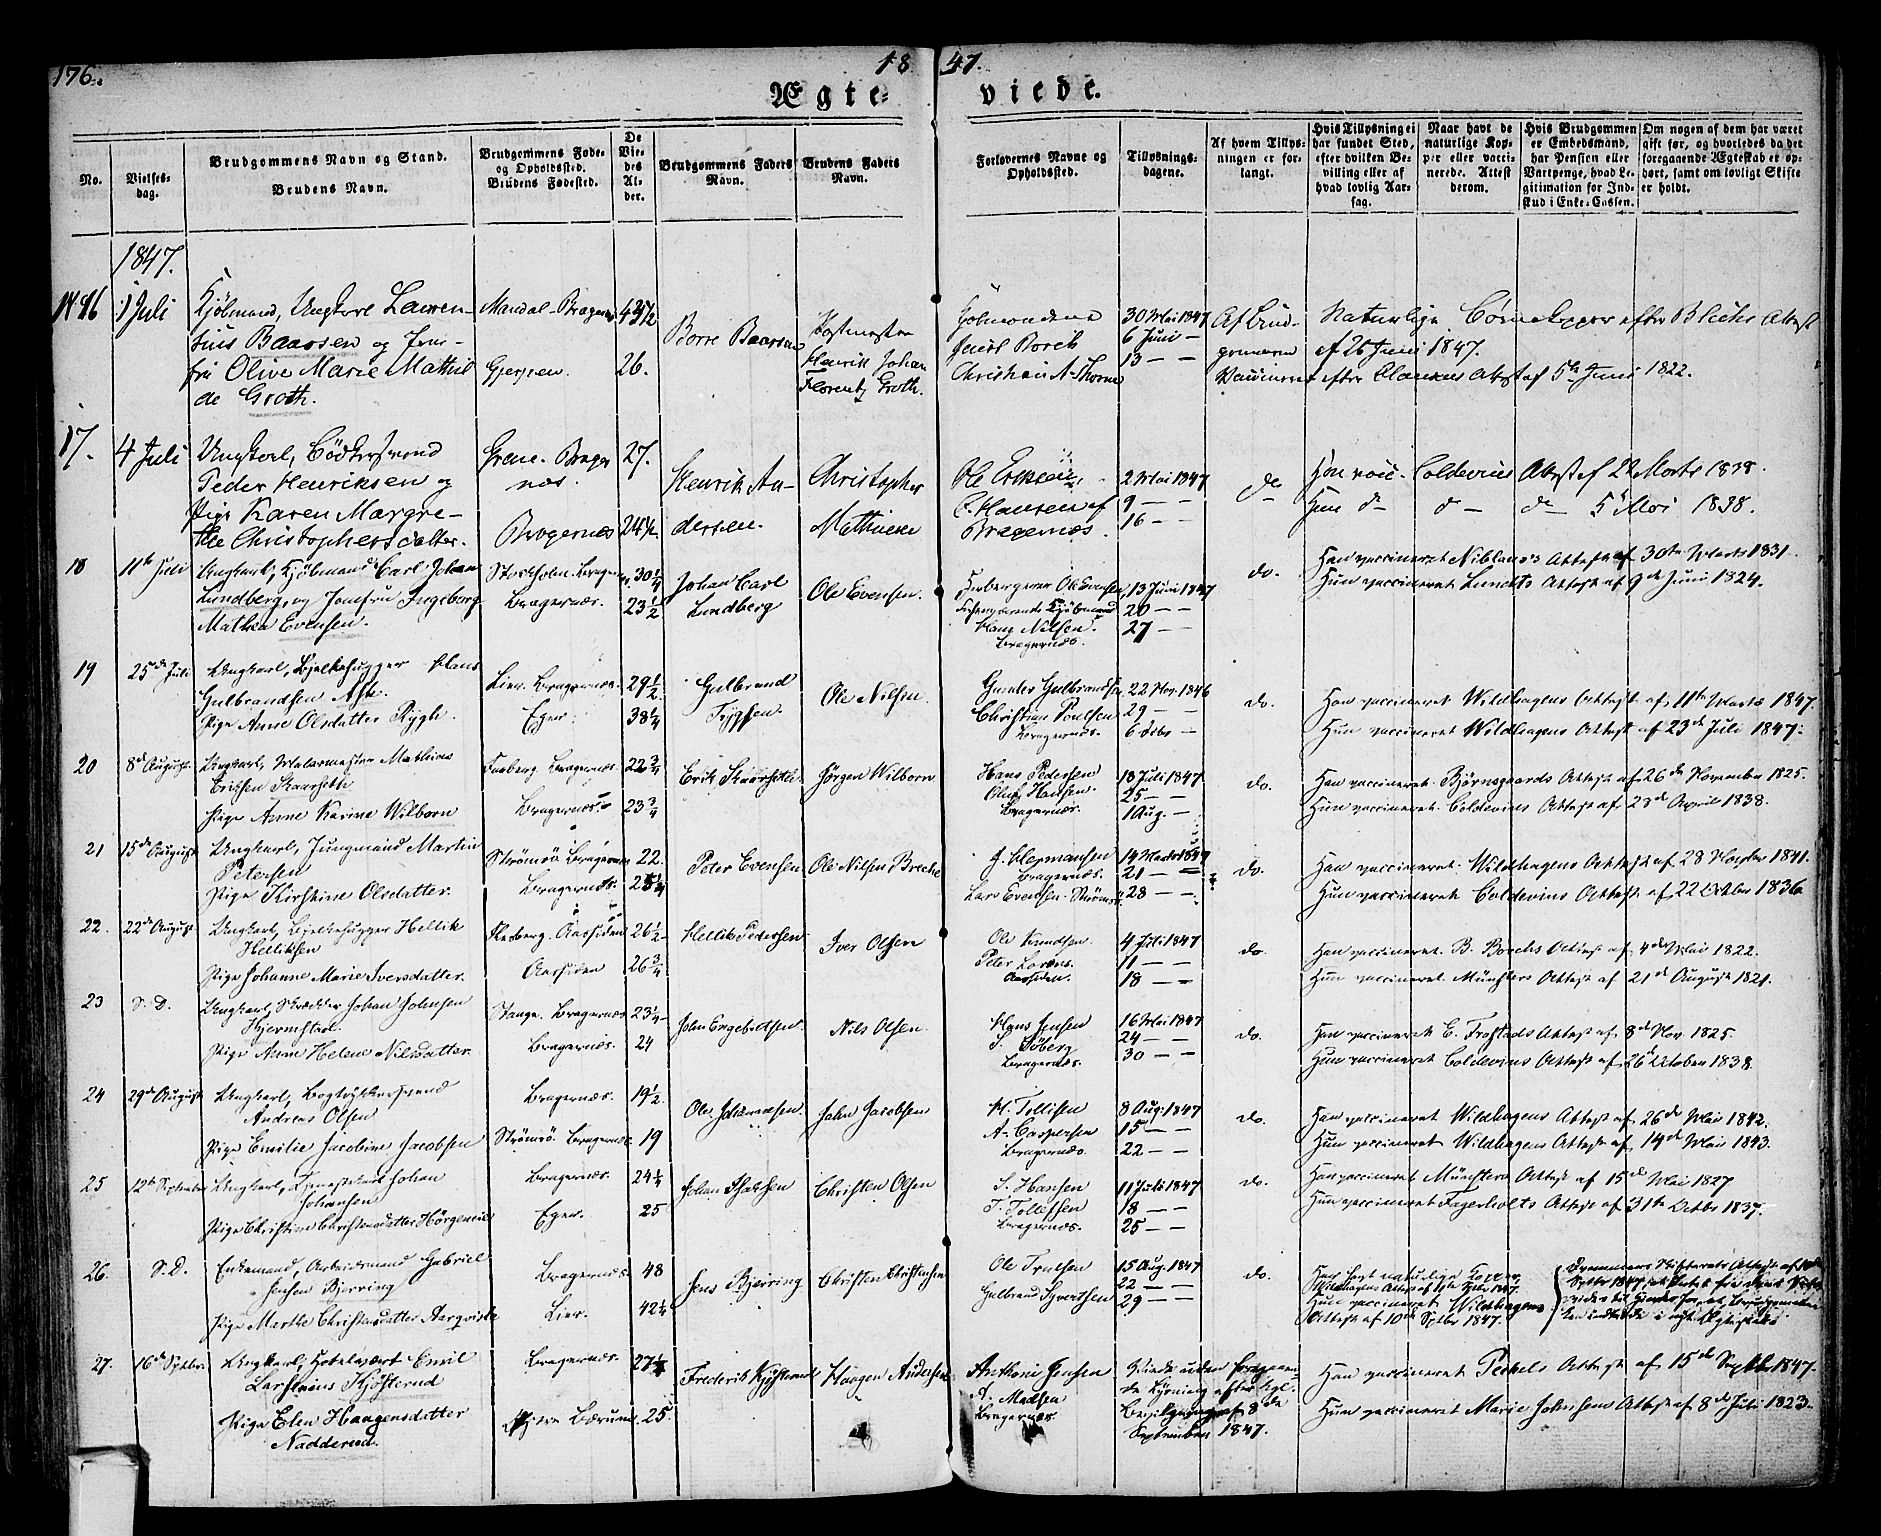 176.
18 47.
Ægte- viede.
No.
Vielses-
dag.
Brudgommens Navn og Stand.
Brudens Navn.
Brudgommens Føde-
og Opholdssted.
Brudens Fødested.
De
Vie-
des
Al-
der.
Brudgommens Faders
Navn.
Brudens Faders
Navn.
Forlovernes Navne og
Opholdssted.
Tillysnings-
dagene.
Af hvem Tillys-
ningen er for-
langt.
Hvis Tillysning ei
har fundet Sted,
efter hvilken Be-
villing eller af
hvad lovlig Aar-
sag.
Naar havt de
naturlige Kop-
per eller vacci-
nerede. Attest
derom.
Hvis Brudgommen
er Embedsmand,
har Pension eller
Vartpenge, hvad Le-
gitimation for Ind-
skud i Enke-Cassen.
Om nogen af dem har været
gift før, og hvorledes da det
foregaaende Ægteskab er op-
hørt, samt om lovligt Skifte
er holdt.
1847.
16 1 Juli
Kjøbmand, Ungkarl Lauren-
tius Baarsen og Jom-
fru Olive Marie Mathil
de Groth.
Mandal - Bragernæs
43 1/2
26.
Borre Baarsen
Postmester
Henrik Johan
Florentz Groth.
Jacob Borch
Christian A. Thorne
30 Mai 1847
6 Juni —
13 — —
Af Brud-
gommen
Naturlige Børnekopper efter Blichs Attest
af 26 Juni 1847.
Vaccineret efter Attest af 5te Juni 1822.
17. 4 Juli
Ungkarl, Bødkersvend
Peder Henriksen og
Pige Karen Margre-
the Christophersdatter.
Brager-
næs.
Bragernæs
27.
24 1/2
Henrik An-
dersen.
Christopher
Mathiesen
Ole Eriksen,
C. Hansen af
Bragernæs.
2 Mai 1847
9 — —
16 — —
do
Han vacc. Coldevins Attest af 22 Marts 1838.
Hun do do do 5 Mai 1838.
18 11te Juli
Ungkarl, Kjøbmand Carl Johan
Lundberg, og Jomfru Ingeborg
Mathea Evensen.
Stockholm. Bragernæs
Bragernæs.
30 1/4
23 1/2
Johan Carl
Lundberg
Ole Evensen.
Ole Evensen,
Kjøbmand
Hans Nilsen.
Bragernæs.
13 Juni 1847
20 — —
27 — —
do.
Han vaccineret Attest af 30te Marts 1831.
Hun vaccineret Lundts Attest af 9de Juni 1824.
19 25de Juli
Ungkarl, Bjelkehugger Hans
Gulbrandsen Ask.
Pige Anne Olsdatter Rygh.
Lier. Bragernæs.
Eger.
29 1/2
38 1/4
Gulbrand
Ole Nilsen.
Gunder Gulbrandsen
Christian Poulsen
Bragernæs.
22 Nov. 1846
29 — —
6 Decbr —
do.
Han vaccineret Wildhagens Attest af 11te Marts 1847.
Hun vaccineret Wildhagens Attest af 23de Juli 1847.
20 8de August
Ungkarl, Malermester Mathias
Eriksen Skaarseth
Pige Anne Karine Wilborn
Faaberg. Bragernæs.
Bragernæs.
22 3/4
23 3/4
Erik Skaarseth
Jørgen Wilborn
Hans Pedersen
Oluf Hansen.
Bragernæs.
18 Juli 1847.
25 — —
1 Aug. —
do.
Han vaccineret Bjørnsgaards Attest af 26de November 1825.
Hun vaccineret Coldevins Attest af 28de April 1838.
21 15de August
Ungkarl, Jungmand Martin
Petersen
Pige Kirstine Olsdatter.
Strømsø. Bragernæs
Bragernæs.
22.
25 1/4
Peter Evensen.
Ole Nilsen Brecke
J. Hermansen
Bragernæs.
Lars Evensen. Strømsø.
14 Marts 1847
21 — —
28 — —
do.
Han vaccineret Wildhagens Attest af 28 October 1841.
Hun vaccineret Coldevins Attest af 22 Octbr 1836
22. 22de August
Ungkarl, Bjelkehugger Hellik
Helliksen
Pige Johanne Marie Iversdatter.
Flesberg. Aassiden
Aassiden
26 1/2
26 3/4
Hellik Pedersen
Iver Olsen
Ole Knudsen.
Peter Lorens.
Aassiden.
4 Juli 1847
11 — —
18 — —
do.
Han vaccineret B. Borchs Attest af 4de Mai 1822.
Hun vaccineret Münsters Attest af 21de August 1821.
23 S. D.
Ungkarl, Skrædder Johan Johnsen
Hjermstad.
Pige Anne Helene Nilsdatter.
Stange. Bragernæs
Bragernæs.
23 1/4
24
John Engebretsen.
Nils Olsen.
Hans Jensen
S. Søberg
Bragernæs.
16 Mai 1847
24 — —
30 — —
do.
Han vaccineret E. Frostads Attest af 8de Nov. 1825.
Hun vaccineret Coldevins Attest af 26de October 1838.
24 29de August
Ungkarl, Bogtrykkersvend
Andreas Olsen
Pige Emilie Jacobine Jacobsen
Bragernæs.
Strømsø. Bragernæs
19 1/2
19
Ole Johannesen.
John Jacobsen
H. Tollefsen
A. Caspersen
Bragernæs.
8 Aug. 1847
15 — —
22 — —
do.
Han vaccineret Wildhagens Attest af 26de Mai 1842.
Hun vaccineret Wildhagens Attest af 14de Mai 1843.
25 12te September
Ungkarl, Johan
Johansen
Pige Christine Christensdatter Hørgeneie
Bragernæs.
Eger.
24 1/4
25
Christen Olsen
S. Hansen
T. Tollefsen
Bragernæs.
11 Juli 1847
18 — —
25 — —
do.
Han vaccineret Münsters Attest af 15de Mai 1827
Hun vaccineret Fagerholts Attest af 31te Octbr 1837.
26. S. D.
Enkemand, Arbeidsmand Gabriel
Jensen Bjerring
Pige Marthe Christensdatter Aarqvisle
Bragernæs.
Lier.
48
42 1/2
Jens Bjerring
Christen Christensen
Ole Truelsen
Gulbrand Syvertsen
15 Aug. 1847
22 — —
29 — —
do.
Han havt naturlige Kopper
Wildhagens Attest af 1847.
Hun vaccineret Wildhagens
Attest af 10de Septbr 1847.
Drammens Skifterets Attest af
Septbr 1847
27. 16de Septbr.
Ungkarl, Hotelvært Emil
Larsenius Kjøsterud
Pige Elen Haagensdatter
Nadderud.
Bragernæs.
Bærum
27 1/4
25.
Frederik Kjøsterud
Haagen Andersen
Anthoni Jensen
A. Madsen
Bragernæs.
Viede uden foregaaen-
de Lysning efter Kgl.
Bevilgning af 8de
September 1847.
Han vaccineret Peckels Attest af 15de Septbr 1847.
Hun vaccineret Marie Johnsens Attest af 8de Juli 1823.